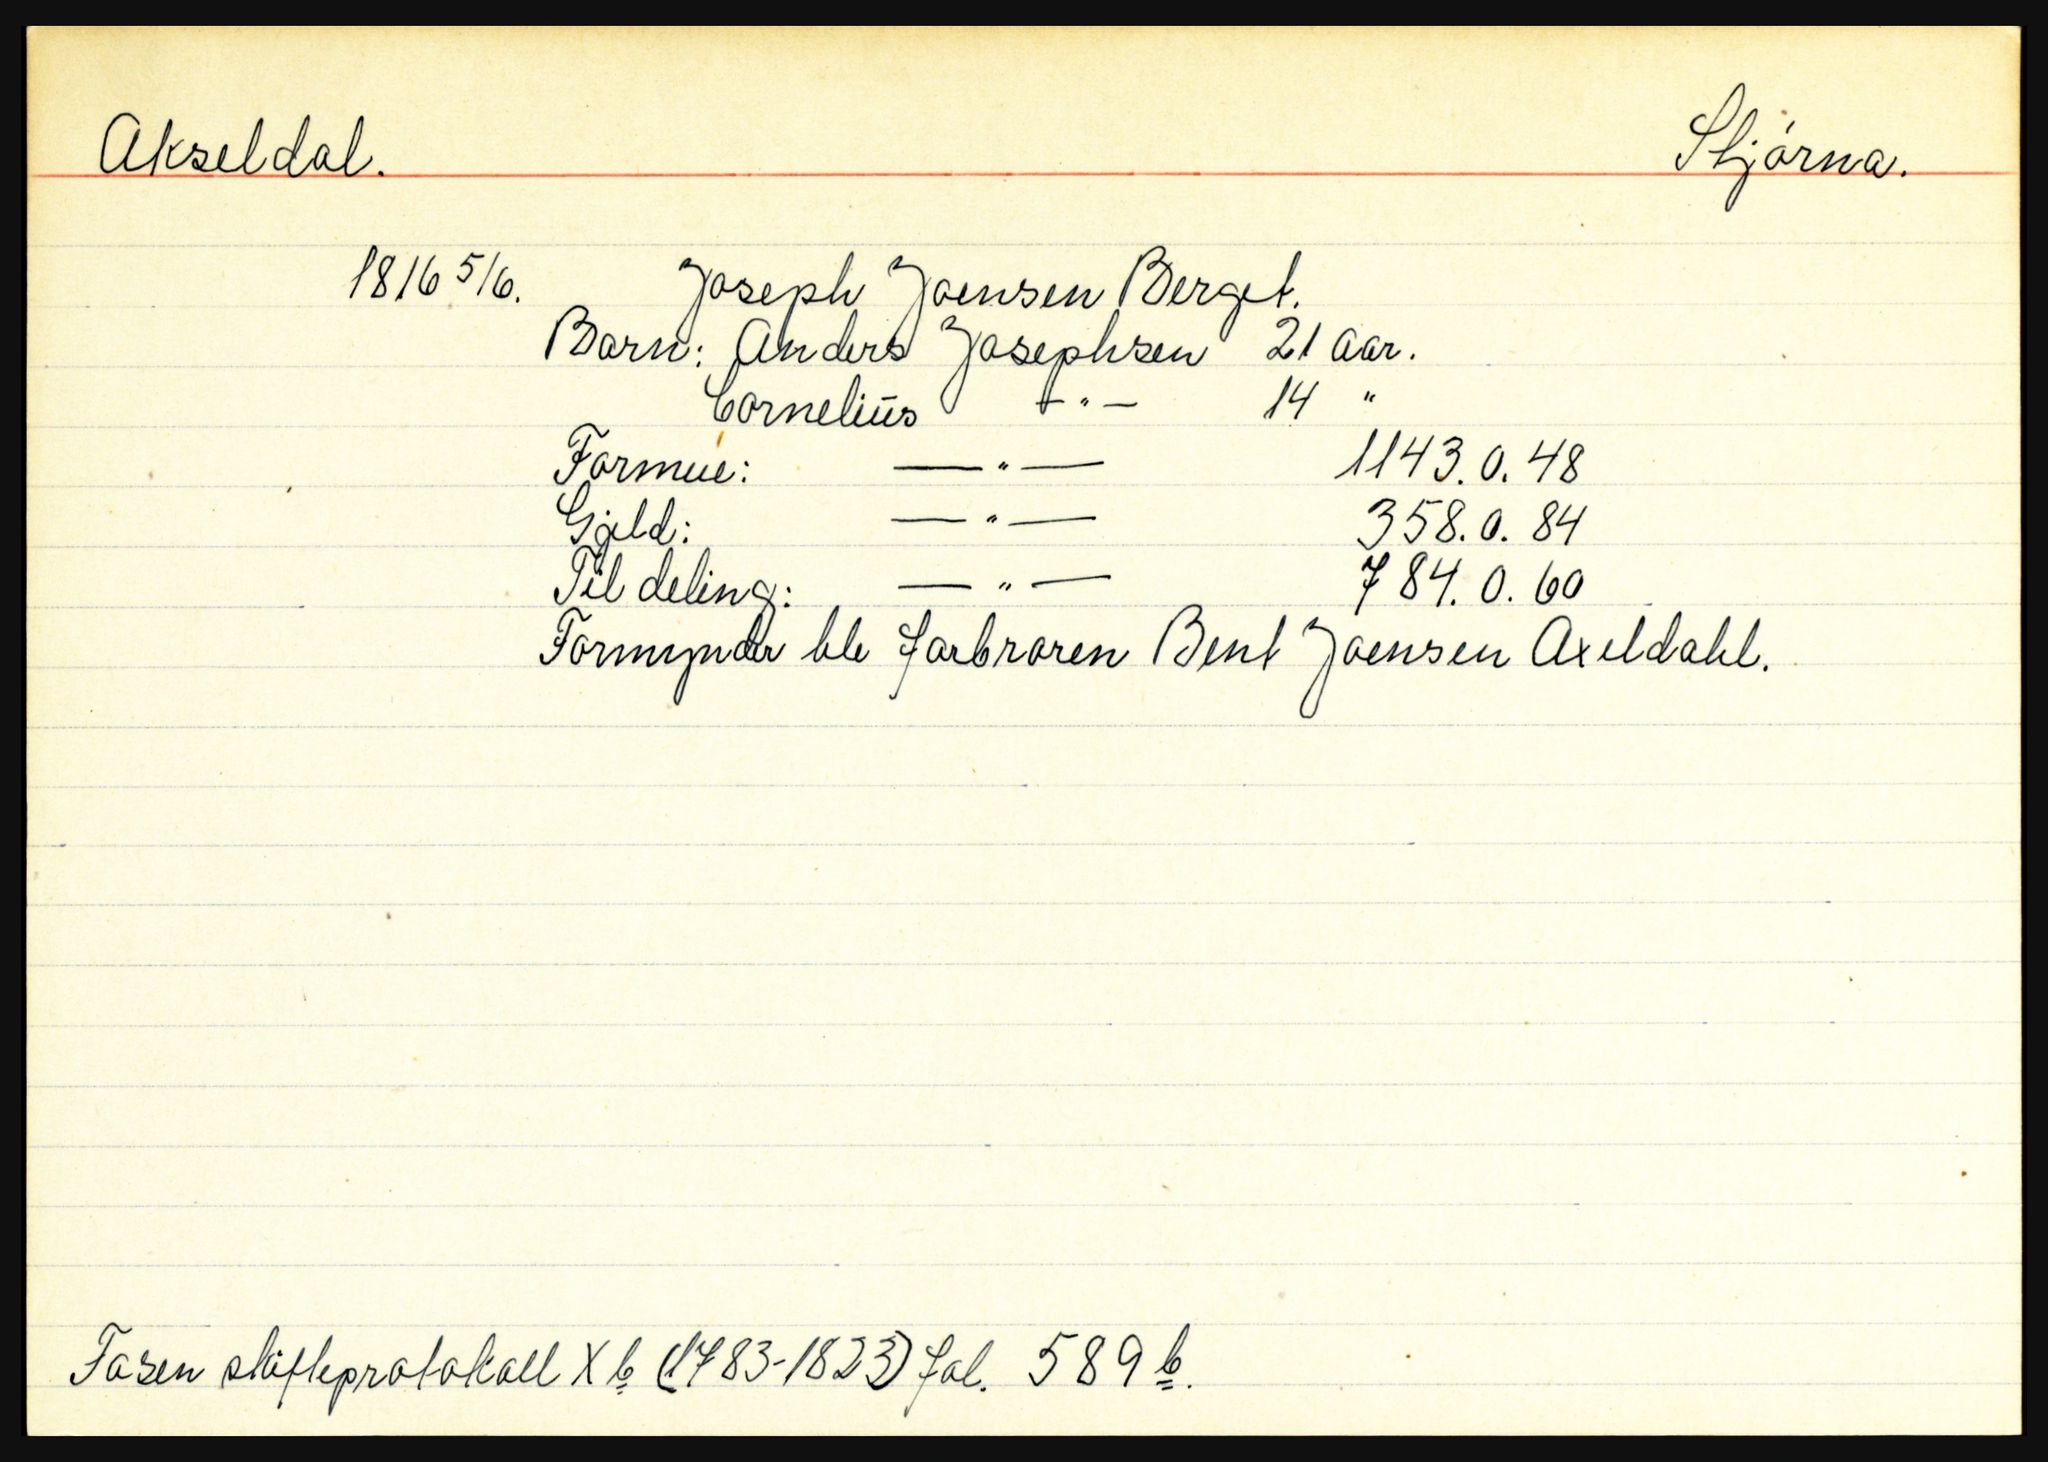 Akseldal. Stjørna.
1816 5/6. Joseph Joensen Berget.
Barn: Anders Josephsen 21 aar.
Cornelius —"— 14 "
Formue: —"— 1143.0.48
Gjeld: —"— 358.0.84
Til deling: —"— 784.0.60
Formynder ble farbroren Bent Joensen Axeldahl.
Fosen skifteprotokoll X b (1783-1823) fol. 589 b.